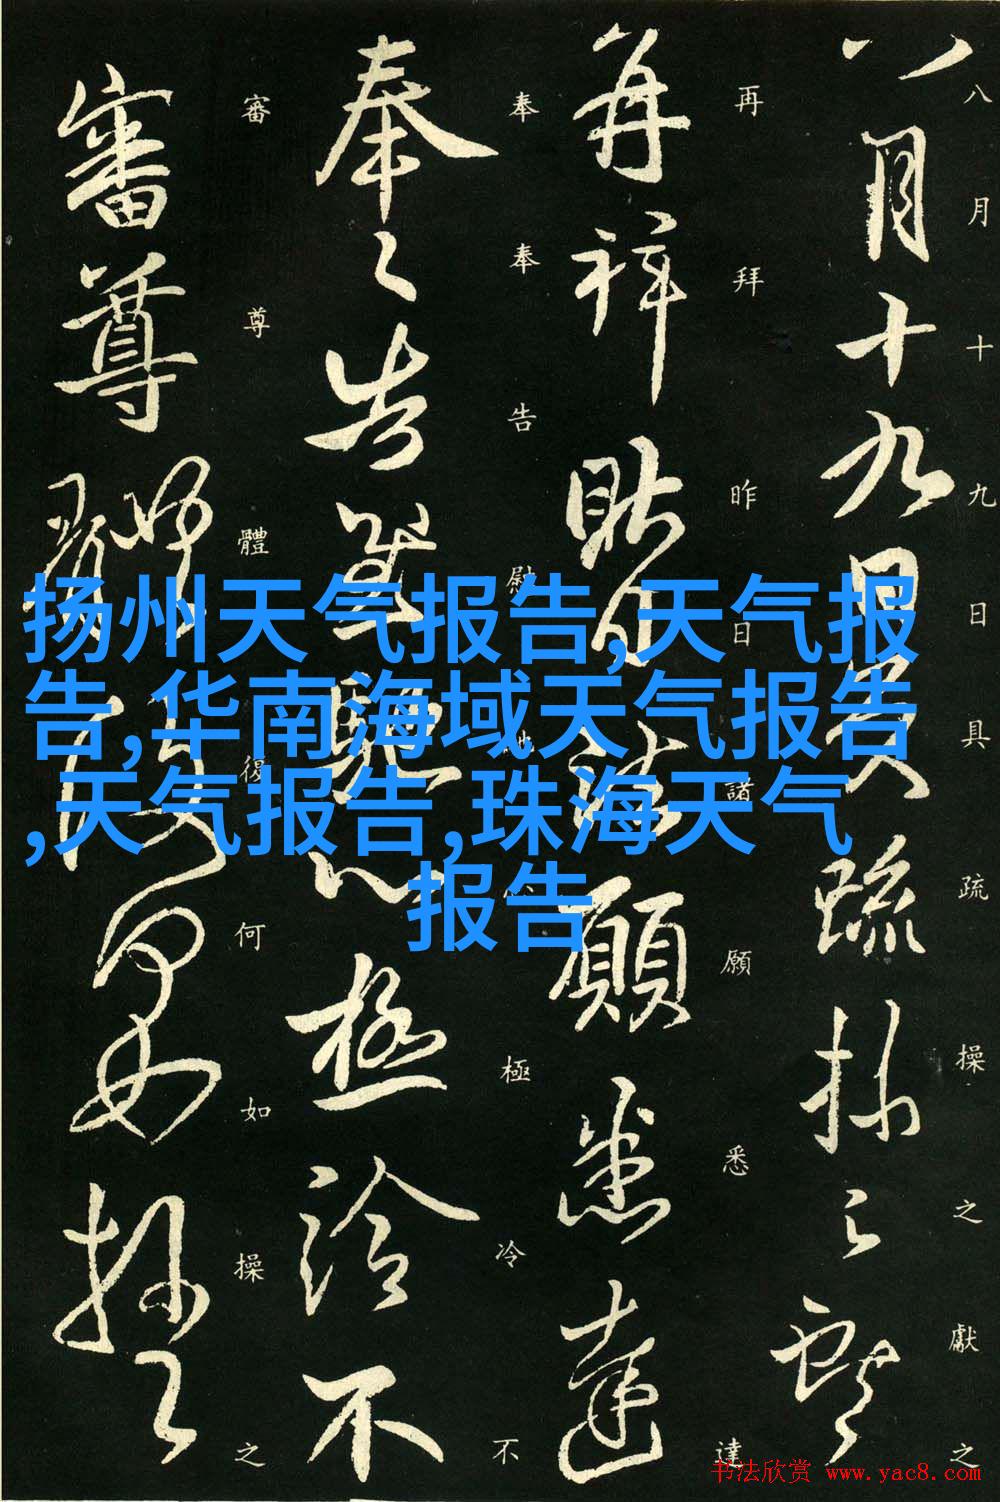 八月十九日具疏操之獻之
八月十九日具疏操之獻之
再拜昨日諸願悉達
再拜昨日諸願悉達
奉奉告慰馳心極冷不
奉々告慰馳心極冷不
審尊體復何如操之
審尊體復何如操之
扬州天气报告,天气报
告,华南海域天气报告
,天气报告,珠海天气
报告
书法欣赏 www.yac8.com